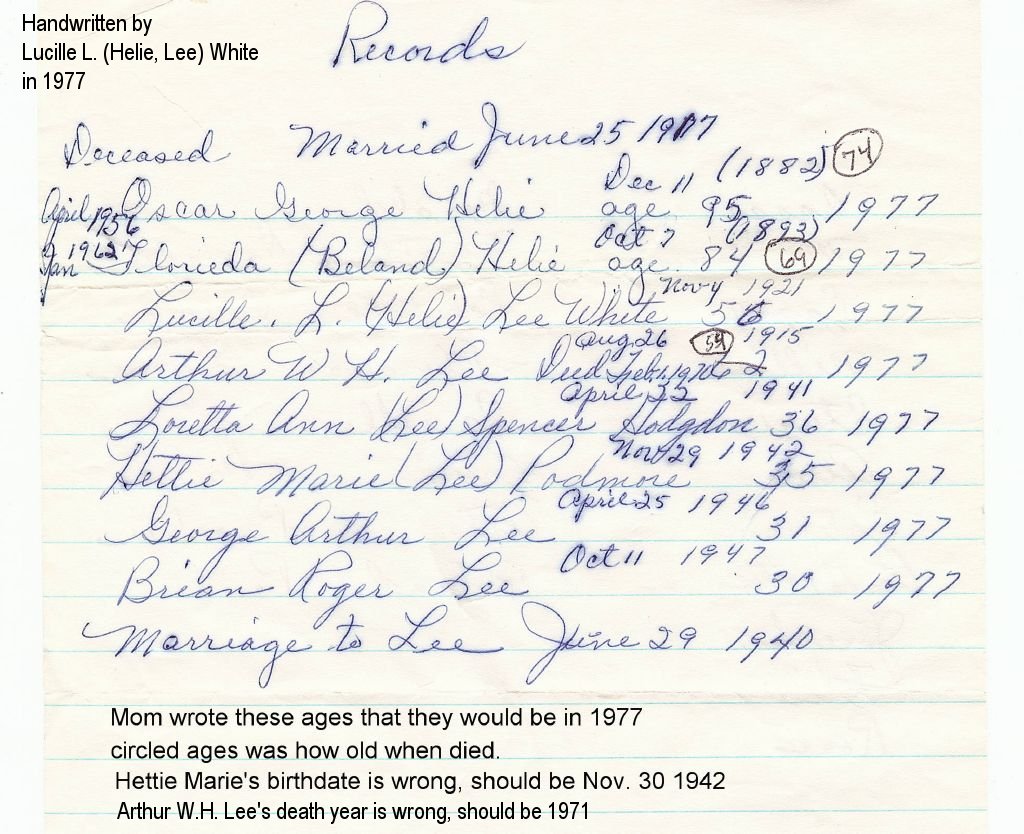 Handwritten by
Lucille L. (Helie, Lee) White
in 1977
Records
Deceased Married June 25 1917
Dec 11 (1882) 74
April 1956 Oscar George Helie age 95 1977
Oct 7 (1893)
Jan 1962 Florieda (Beland) Helie age 84 69 1977
Nov 4 1921
Lucille. L. (Helie) Lee White 56 1977
Aug 26 54 1915
Arthur W H. Lee Died Feb. 1, 1970 62 1977
April 1941
Loretta Ann (Lee) Spencer Hodgdon 36 1977
Nov 29 1942
Hettie Marie (Lee) Podmore 35 1977
April 25 1946
George Arthur Lee 31 1977
Oct 11 1947
Brian Roger Lee 30 1977
Marriage to Lee June 29 1940
Mom wrote these ages that they would be in 1977
circled ages was how old when died.
Hettie Marie's birthdate is wrong, should be Nov. 30 1942
Arthur W.H. Lee's death year is wrong, should be 1971